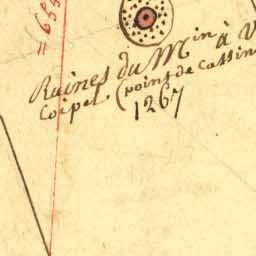 Ruines du M^in à V
Coipel. (point de Cassin
1267